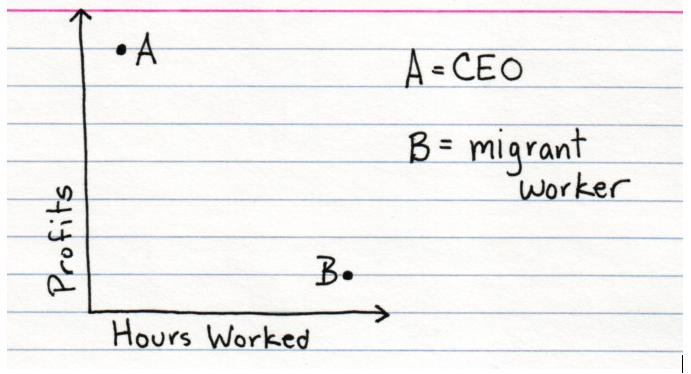 A
A = CEO
B = migrant
worker
Profits
B
Hours Worked